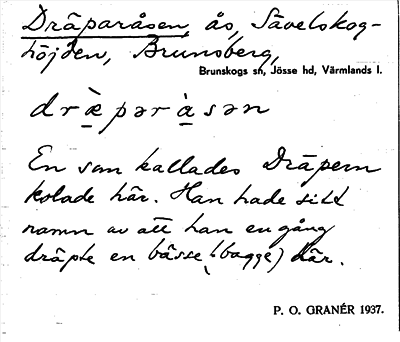 Dräparåsen, ås, Sävelskog-
höjden, Brunsberg,
Brunskogs sn, Jösse hd, Värmlands l.
dræ̱pərà̱sən
En som kallades Dräpern
kolade här. Han hade sitt
namn av att han en gång
dräpte en bässe (bagge) här.
P. O. GRANÉR 1937.